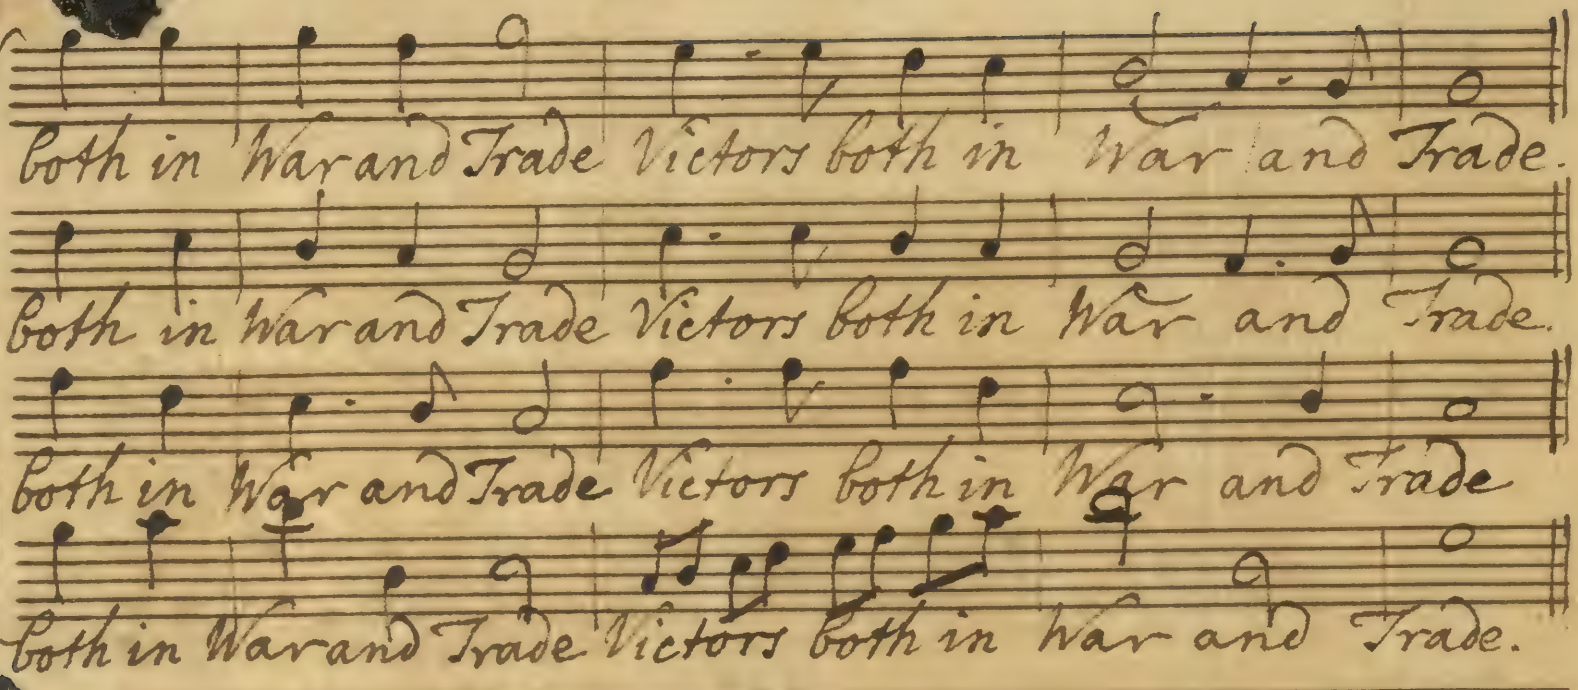 both in War and Trade Victors both in War and Trade.
both in War and Trade Victors both in War and Trade.
both in War and Trade Victors both in War and Trade
both in War and Trade Victors both in War and Trade.